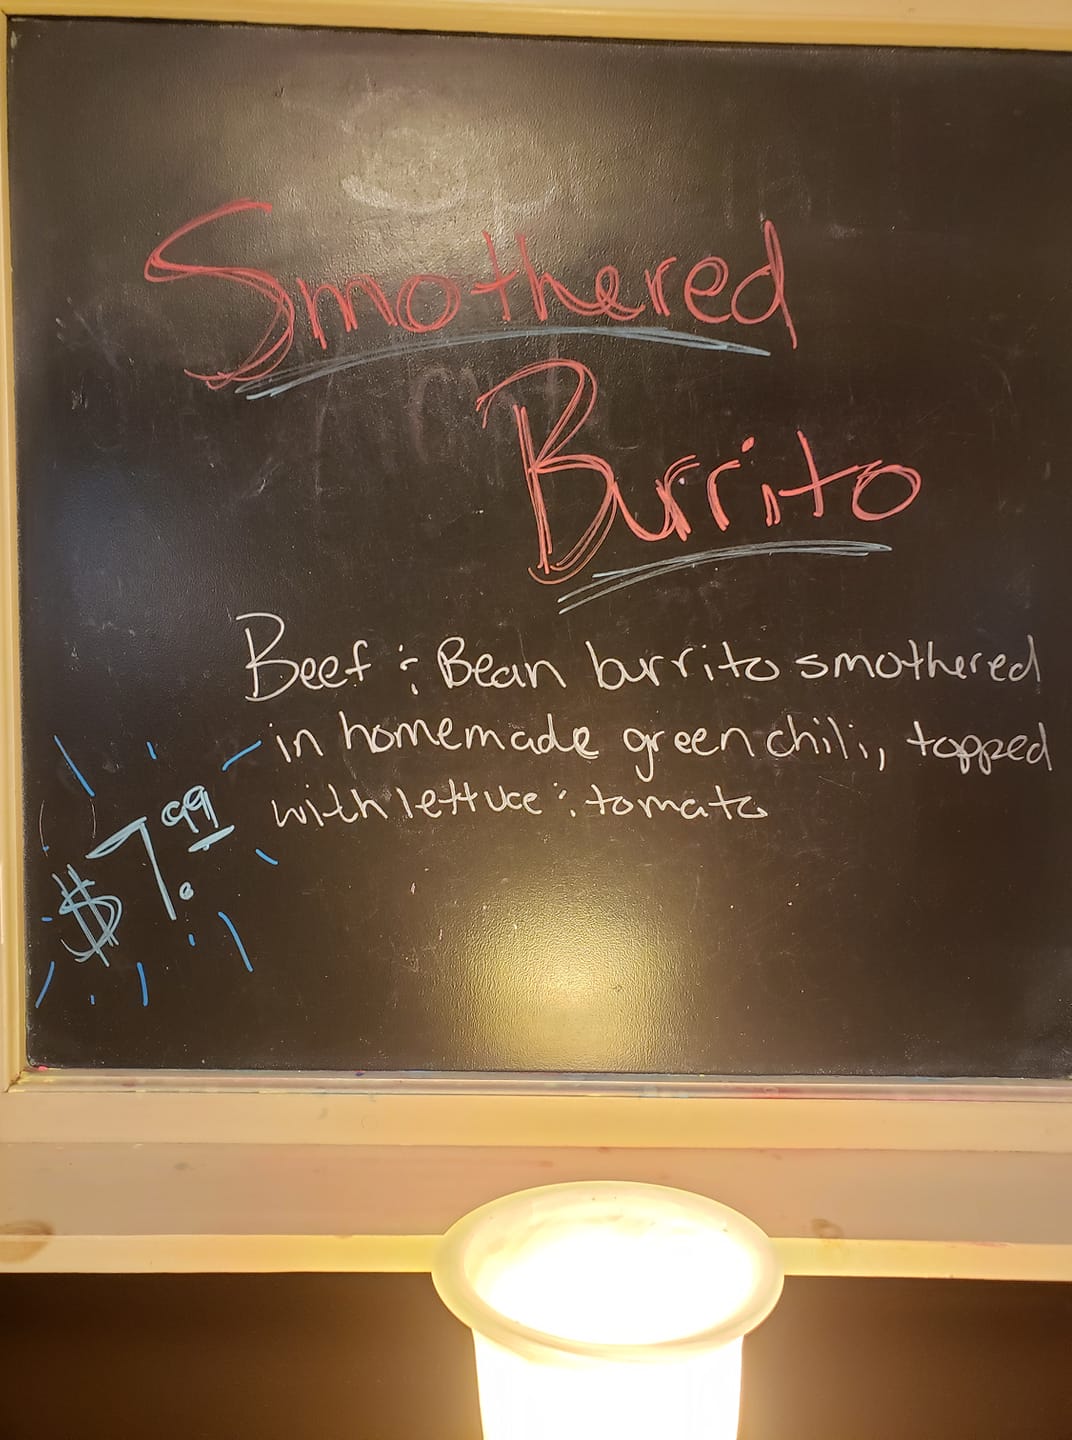 Smothered
Burrito
Beef & Bean burrito smothered
in homemade green chili, topped
with lettuce & tomato
$7.99